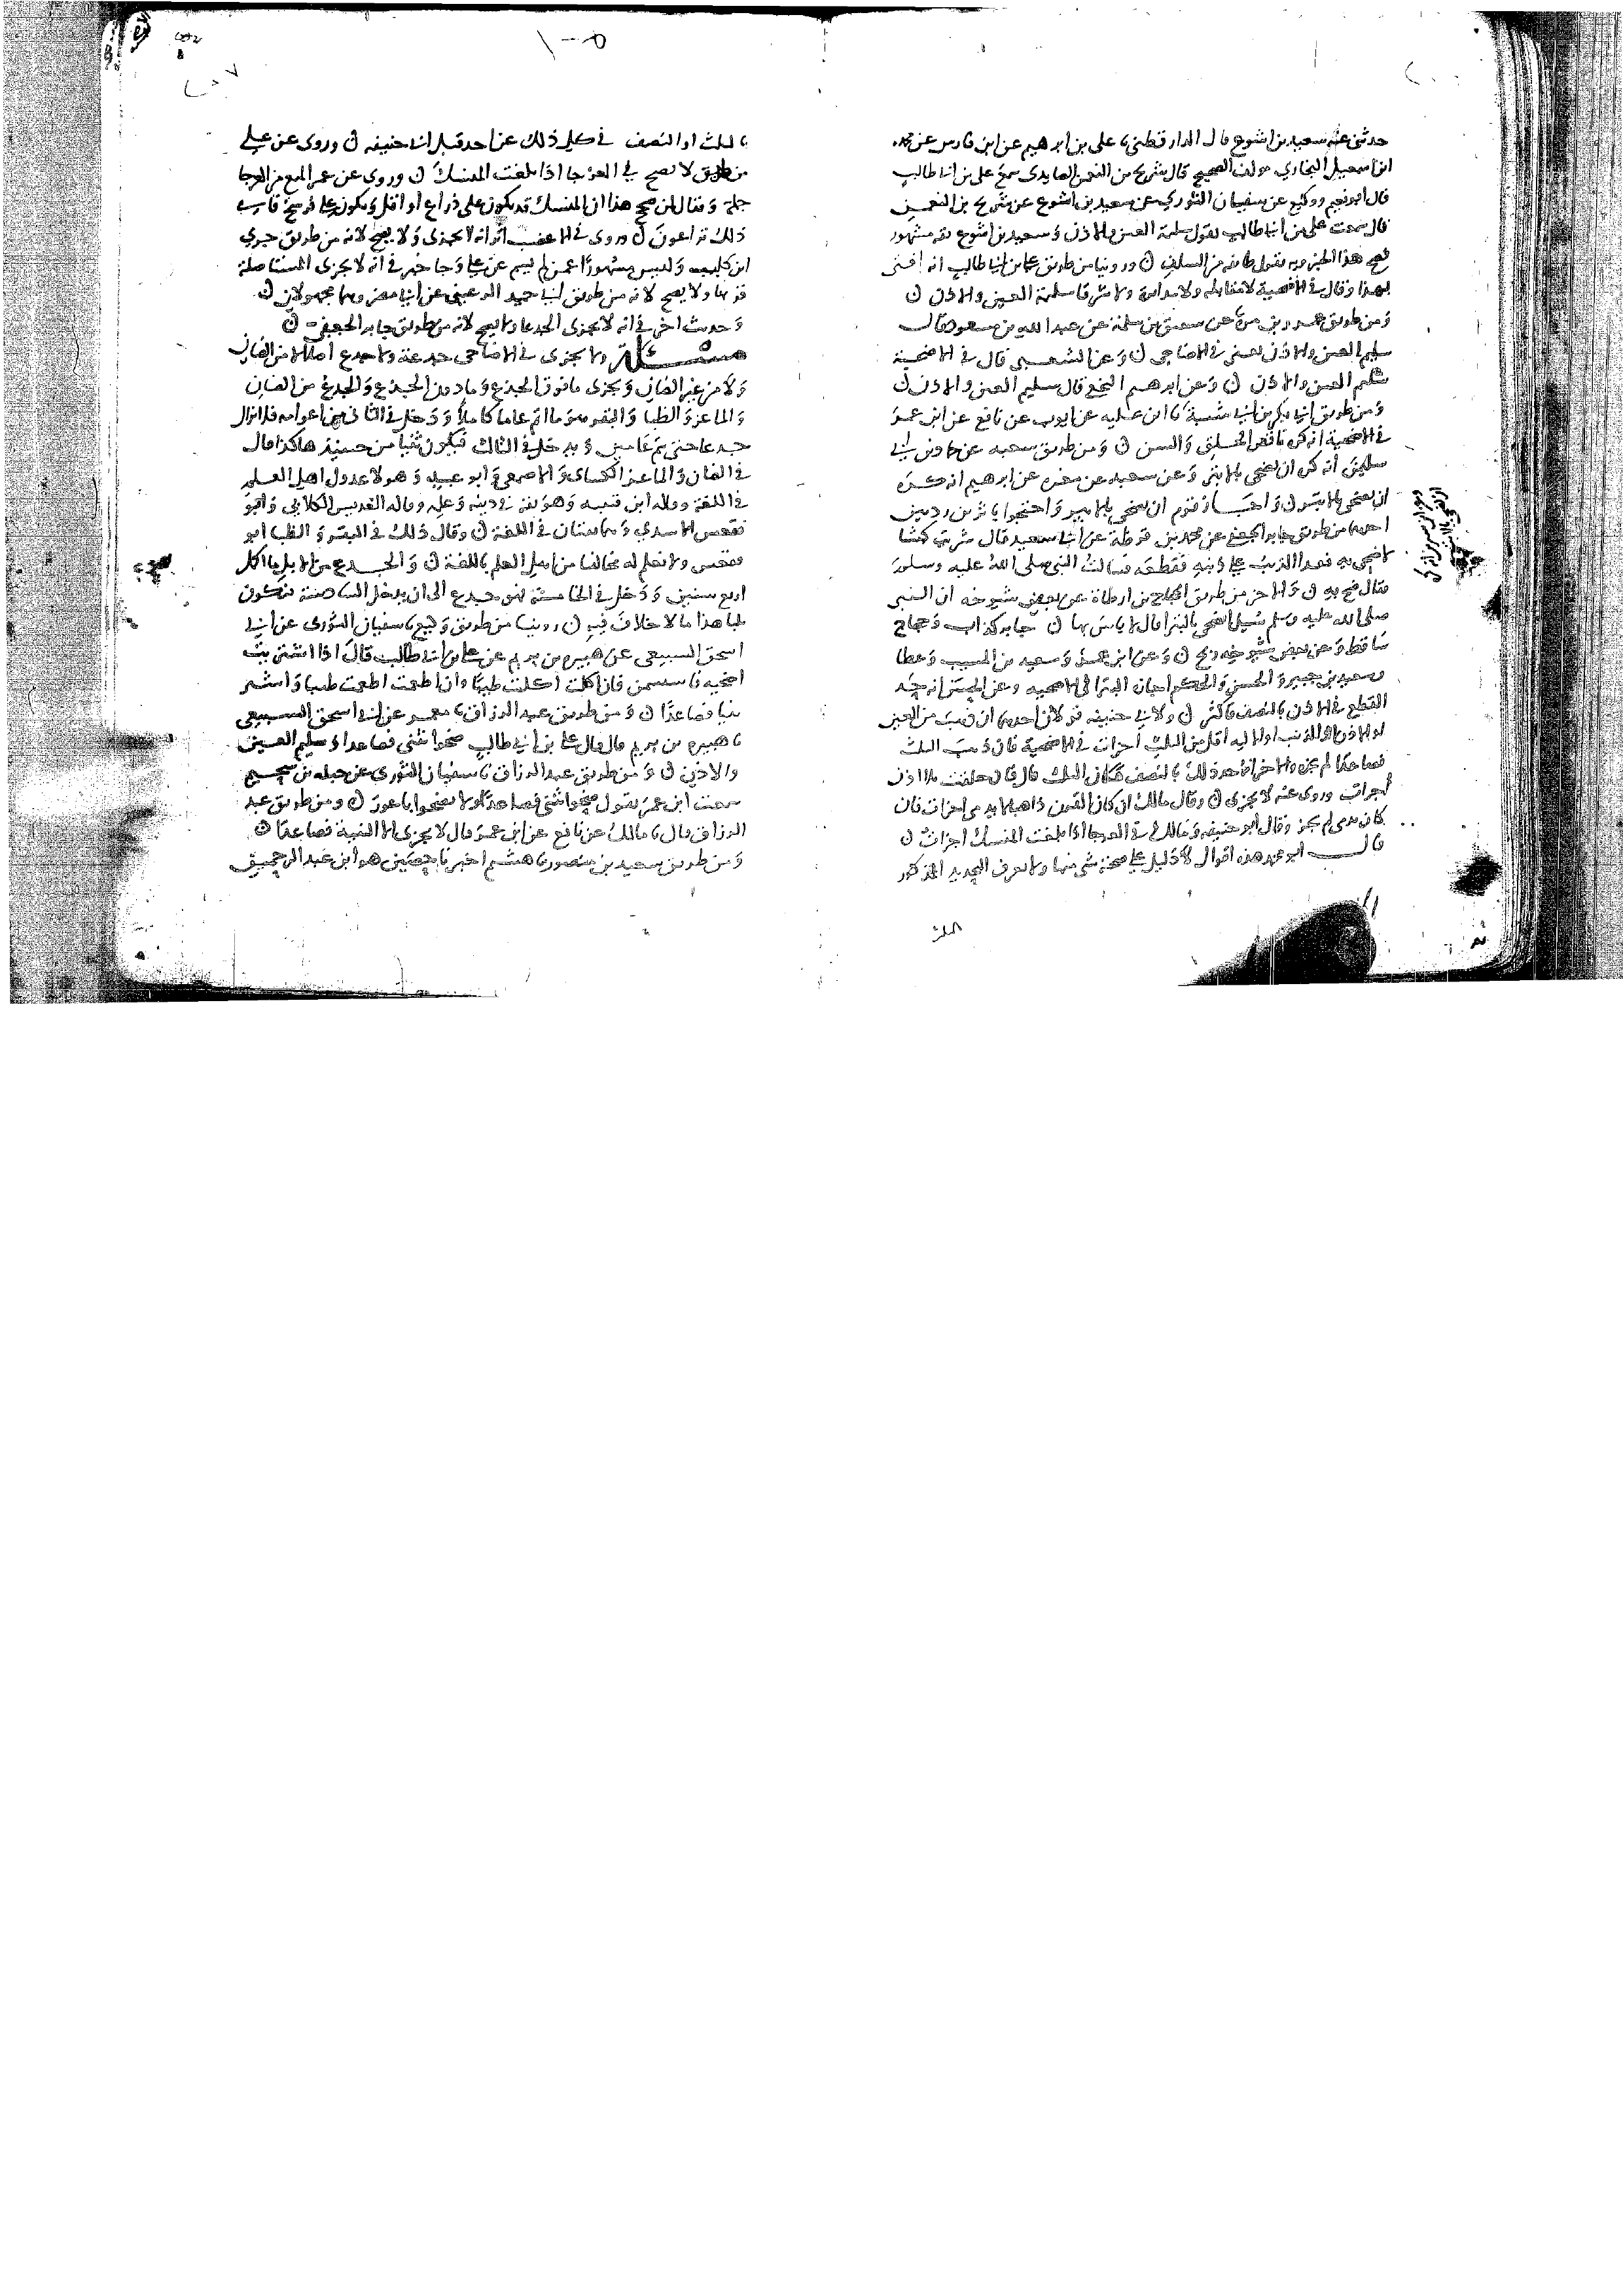 حدثني عنه سعيد بن اشوع قال الدارقطني نا علي بن ابرهيم عن ابن فارس عن محمد
ابن اسمعيل البخاري مولف الصحيح قال شريح بن النعمن الصايدي سمع علي بن ابي طالب
قال ابو نعيم ووكيع عن سفيان الثوري عن سعيد بن اشوع عن شريح بن النعمن
قال سمعت علي بن ابي طالب يقول سليمة العين والاذن وسعيد بن اشوع ثقة مشهور
فصح هذا الخبر وبه تقول طائفة من السلف ن وروينا من طريق علي بن ابي طالب انه افتى
بهذا وقال في الاضحية لا مقابلة ولا مدابرة ولا شرقا سليمة العين والاذن ن
ومن طريق عمرو بن مرة عن شقيق بن سلمة عن عبد الله بن مسعود قال
سليم العين والاذن يعني في الاضاحي ن وعن الشعبي قال في الاضحية
سليم العين والاذن ن وعن ابرهيم النخعي قال سليم العين والاذن ن
ومن طريق ابي بكر بن ابي شيبة نا ابن علية عن ايوب عن نافع عن ابن عمر
في الاضحية انه كره ناقص الخلق والسن ن ومن طريق شعبة عن حماد بن ابي
سليمن انه كره ان يضحي بالابتر وعن شعبة عن مغيرة عن ابرهيم انه كره
ان يضحي بالابتر ن واجاز قوم ان يضحى بالابتر واحتجوا باثرين رديين
احدهما من طريق جابر الجعفي عن محمد بن قرظة عن ابي سعيد قال شريت كبشا
لاضحي به فعدا الذيب على ذنبه فقطعه فسالت النبي صلى الله عليه وسلم
فقال ضح به ن والاخر من طريق الحجاج بن ارطاة عن بعض شيوخه ان النبي
صلى الله عليه وسلم سئل ايضحى بالبترا قال لا باس بها ن جابر كذاب وحجاج
ساقط وعن بعض شيوخه ريح ن وعن ابن عمر وسعيد بن المسيب وعطا
وسعيد بن جبير والحسن والحكم اجازة البترا في الاضحية
القطع في الاذن بالنصف فاكثر ن ولابي حنيفة قولان احدهما ان ذهب من العين
او الاذن او الذنب او الالية اقل من الثلث اجزات في الاضحية فان ذهب الثلث
فصاعدا لم يجز والاخر انه حد ذلك بالنصف مكان الثلث قال فان خلقت بلا اذن
اجزات وروي عنه لا تجزي ن وقال مالك ان كان القرن ذاهبا لا يدمي اجزات فان
كان يدمي لم يجز وقال ابو حنيفة ومالك في العرجا اذا بلغت المنسك اجزات ن
قال ابو محمد هذه اقوال لا دليل على صحة شي منها ولا نعرف التحديد المذكور
بالثلث
بالثلث او النصف في كل ذلك عن احد قبل ابي حنيفة ن وروي عن علي
من طريق لا تصح في العرجا اذا بلغت المنسك ن وروي عن عمر المنع من العرجا
جملة ويقال لمن صحح هذا ان المنسك قد يكون على ذراع او اقل ويكون على فرسخ فاي
ذلك تراعون ن وروي في الاعضب اثر انه لا يجزي ولا يصح لانه من طريق جري
ابن كليب وليس مشهورا عمن لم يسم عن علي وجا خبر في انه لا يجزي المستاصلة
قرنها ولا يصح لانه من طريق ابي حميد الرعيني عن ابي مضر وهما مجهولان ن
وحديث اخر في انه لا تجزي الجدعا ولا يصح لانه من طريق جابر الجعفي ن
مسئلة ولا يجزي في الاضاحي جذعة ولا جذع اصلا لا من الضان
ولا من غير الضان ويجزي ما فوق الجذع وما دون الجذع والجذع من الضان
والماعز والظبا والبقر هو ما اتم عاما كاملا ودخل في الثاني من اعوامه فلا يزال
جذعا حتى يتم عامين ويدخل في الثالث فيكون ثنيا من حينيذ هاكذا قال
في الضان والماعز الكساي والاصمعي وابو عبيد وهولا عدول اهل العلم
في اللغة وقاله ابن قتيبة وهو ثقة في دينه وعلمه وقاله العدبس الكلابي وابو
فقعس الاسدي وهما ثقتان في اللغة ن وقال ذلك في البقر والظبا ابو
فقعس ولا نعلم له مخالفا من اهل العلم باللغة ن والجذع من الابل ما اكمل
اربع سنين ودخل في الخامسة فهو جذع الى ان يدخل السادسة فيكون
ثنيا هذا ما لا خلاف فيه ن روينا من طريق وكيع نا سفيان الثوري عن ابي
اسحق السبيعي عن هبيرة بن يريم عن علي بن ابي طالب قال اذا اشتريت
اضحية فاستسمن فان اكلت اكلت طيبا وان اطعمت اطعمت طيبا واشتر
ثنيا فصاعدا ن ومن طريق عبد الرزاق نا معمر عن ابي اسحق السبيعي
نا هبيرة بن يريم قال قال علي بن ابي طالب ضحوا بثني فصاعدا وسليم العين
والاذن ن ومن طريق عبد الرزاق نا سفيان الثوري عن جبلة بن سحيم
سمعت ابن عمر يقول ضحوا بثني فصاعدا ولا تضحوا باعور ن ومن طريق عبد
الرزاق قال نا مالك عن نافع عن ابن عمر قال لا يجزي الا الثنية فصاعدا ن
ومن طريق سعيد بن منصور نا هشيم اخبرنا حصين هو ابن عبد الرحمن